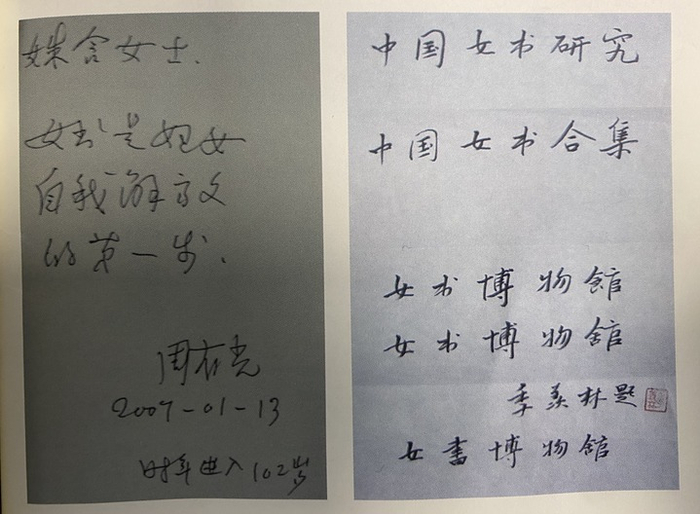 姝含女士.
女书是妇女
自我解放
的第一步.
周有光
2007-01-13
时年进入102岁
中国女书研究
中国女书合集
女书博物館
女书博物舘
季羡林题
女書博物館